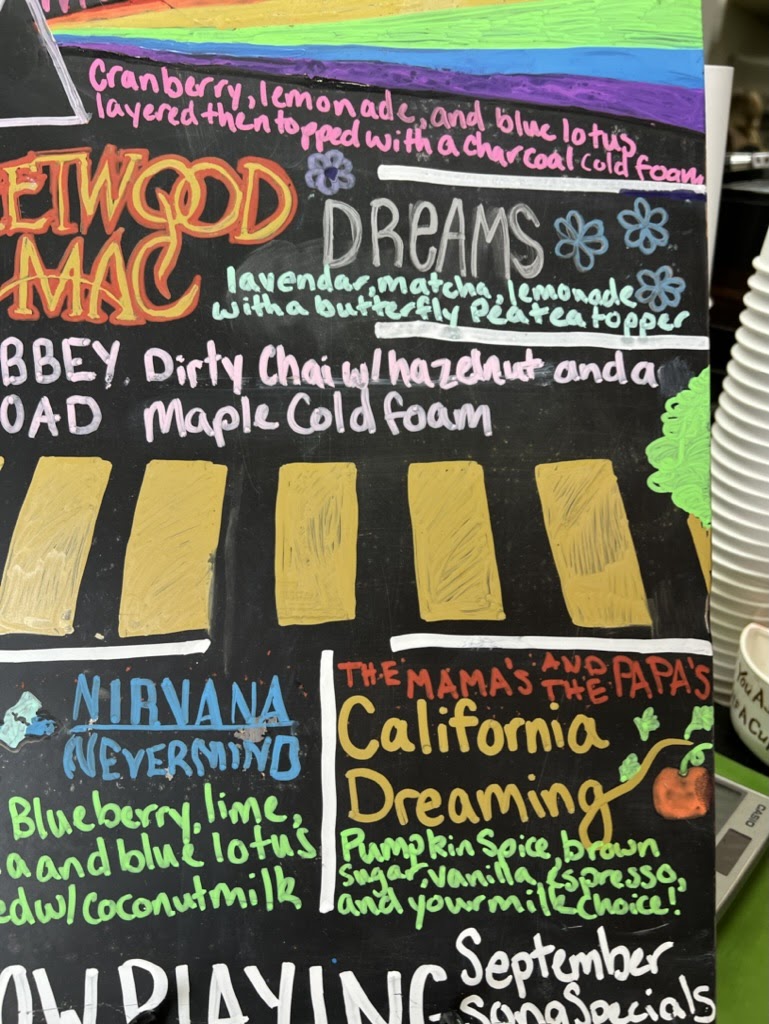 Cranberry, lemonade, and blue lotus
layered then topped with a charcoal cold foam
ETWOOD
MAC
DREAMS
lavendar, matcha, lemonade
with a butterfly pea tea topper
BBEY
OAD
Dirty Chai w/ hazelnut and a
Maple Cold foam
NIRVANA
NEVERMIND
Blueberry, lime,
a and blue lotus
ed w/ coconut milk
THE MAMA'S AND THE PAPA'S
California
Dreaming
Pumpkin Spice, brown
sugar, vanilla, Espresso,
and your milk choice!
OW PLAYING
September
Song Specials
YOU A
OF A CU
CASIO